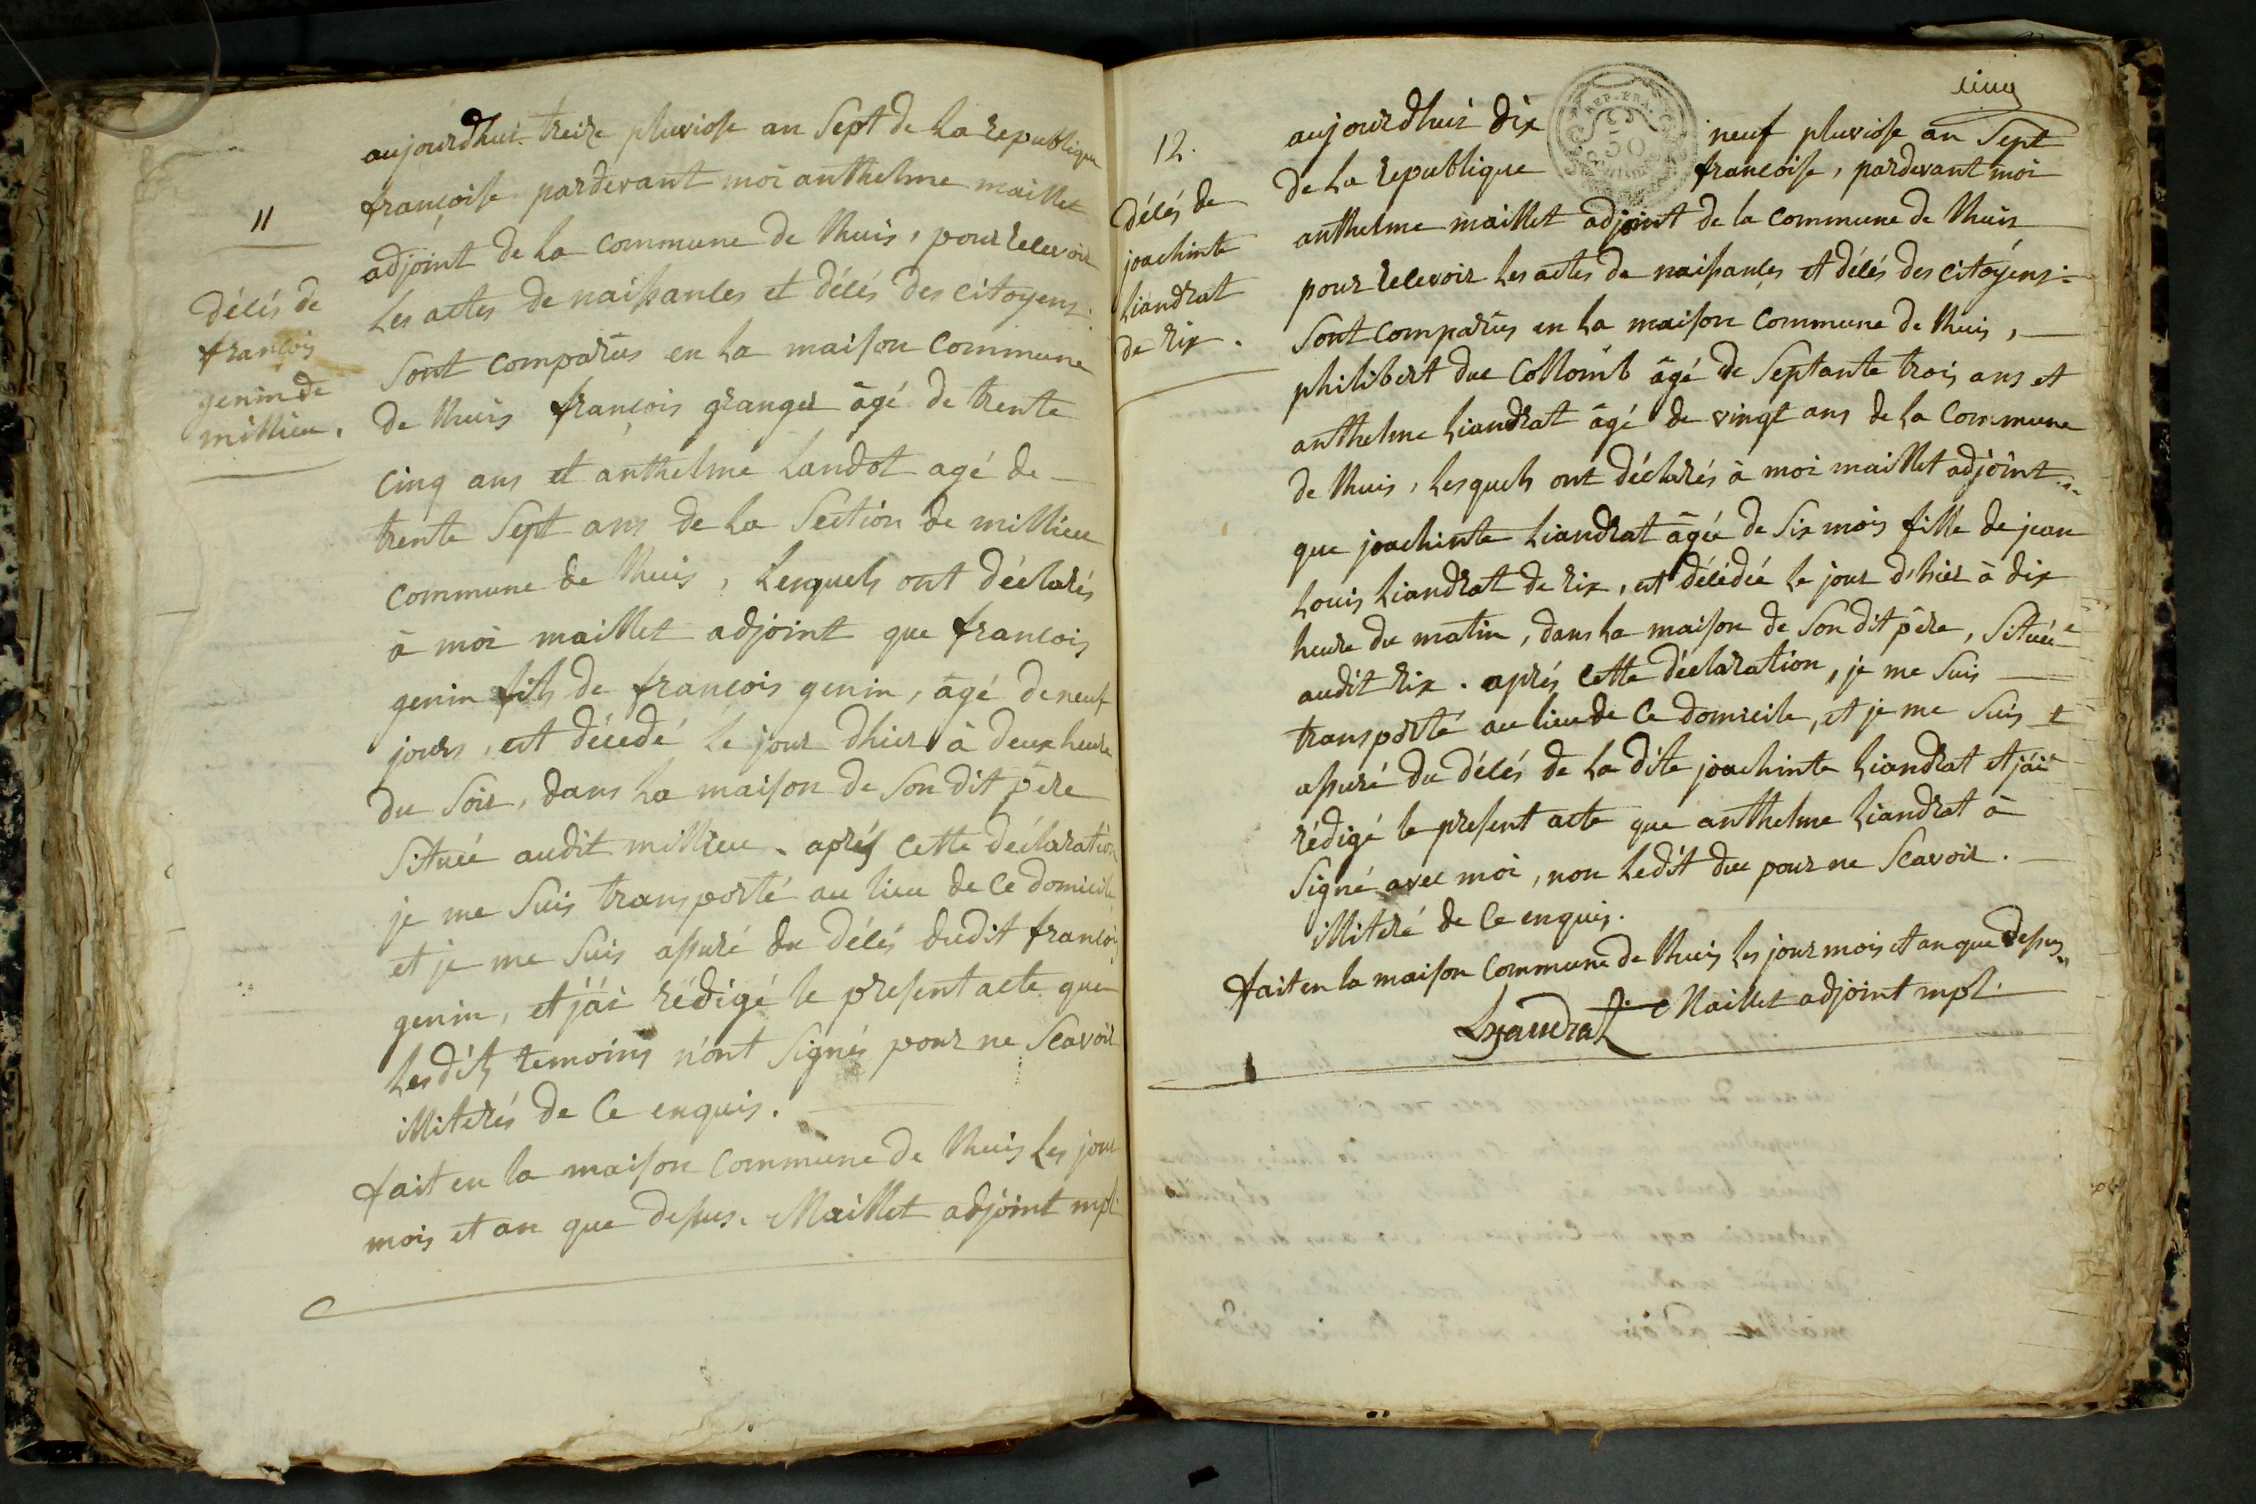 11
décés de
françois
genin de
millieu.
aujourdhui treize pluviose an Sept de la republique
françoise pardevant moi anthelme maillet
adjoint de la commune de lhuis, pour recevoir
Les actes de naissances et décés des citoyens.
Sont comparûs en la maison commune
de lhuis françois granger âgé de trente
cinq ans et anthelme Landot agé de
trente Sept ans de la Section de millieu
commune de lhuis, Lesquels ont déclarés
à moi maillet adjoint que françois
genin fils de françois genin, âgé de neuf
jours, est décedé le jour dhier à deux heure
du Soir, dans la maison de Son dit père
Située audit millieu. aprés cette déclaration
je me Suis transporté au lieu de ce domicile
et je me Suis assuré du décés dudit françois
genin, et j'ai rédigé le present acte que
Lesdits temoins n'ont Signés pour ne Scavoir
illiterés de ce enquis.
fait en la maison commune de lhuis Les jour
mois et an que dessus. Maillet adjoint mpl.
cinq
REP. FRA.
50
12.
décés de
joachinte
Liandrat
de rix.
aujourdhui dix neuf pluviose an Sept
de la republique françoise, pardevant moi
anthelme maillet adjoint de la commune de lhuis
pour recevoir Les actes de naissances et décés des citoyens:
Sont comparûs en la maison commune de lhuis,
philibert duc Collomb âgé de Septante trois ans et
anthelme Liandrat âgé de vingt ans de la commune
de lhuis, Lesquels ont déclarés à moi maillet adjoint
que joachinte Liandrat âgée de Six mois fille de jean
Louis Liandrat de rix, est décédée le jour d'hier à dix
heure du matin, dans la maison de Son dit père, Située
audit rix. aprés cette déclaration, je me Suis
transporté au lieu de ce domicile, et je me Suis
assuré du décés de la dite joachinte Liandrat et j'ai
rédigé le present acte que anthelme Liandrat à
Signé avec moi, non Ledit duc pour ne Scavoir.
illiteré de ce enquis.
fait en la maison commune de lhuis Les jour mois et an que dessus
Lyandrat Maillet adjoint mpl.